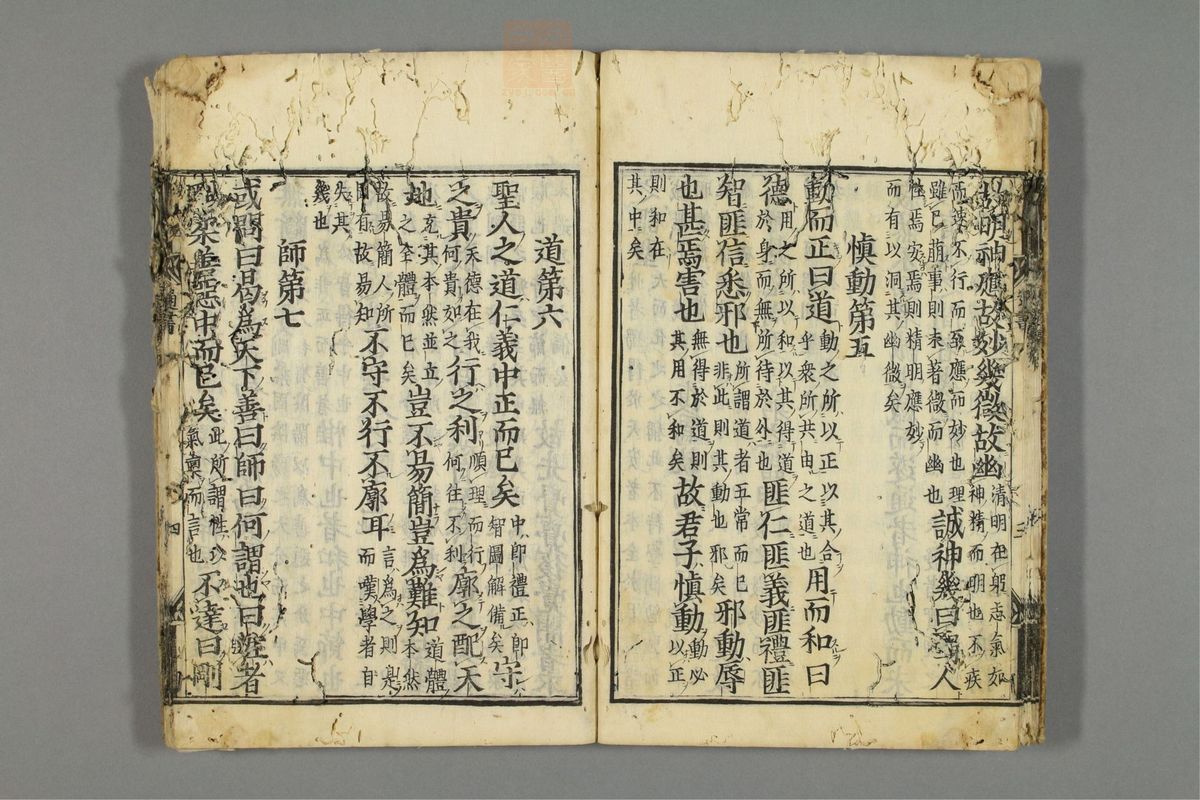 故明神應故妙幾微故幽清明在躬志氣如神精而明也不疾
而速不行而至應而妙也理雖已萌事則未著微而幽也誠神幾曰聖人
性焉安焉則精明應妙而有以洞其幽微矣
慎動第五
動而正曰道動之所以正以其合乎衆所共由之道也用而和曰
德用之所以和以其得道於身而無所待於外也匪仁匪義匪禮匪
智匪信悉邪也所謂道者五常而已非此則其動也邪矣邪動辱
也甚焉害也無得於道則其用不和矣故君子慎動動必以正
則和在其中矣
道第六
聖人之道仁義中正而已矣中即禮正即智圖解備矣守
之貴天德在我何貴如之行之利順理而行何往不利廓之配天
地充其本然並立之全體而已矣豈不易簡豈爲難知道體本然
故易簡人所固有故易知不守不行不廓耳言爲之則是而嘆學者自
失其幾也
師第七
或問曰曷爲天下善曰師曰何謂也曰性者
剛柔善惡中而已矣此所謂性以氣稟而言也不達曰剛